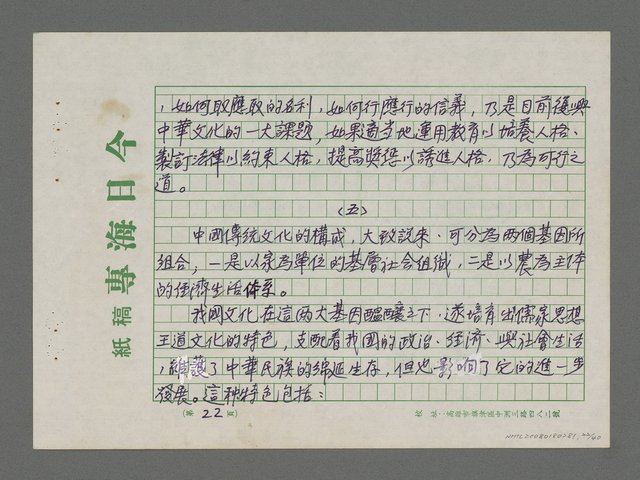 ，如何取應取的名利，如何行應行的信義，乃是目前復興
中華文化的一大課題，如果適当地運用教育以培養人格、
製訂法律以約束人格，提高獎懲以誘進人格，乃為可行之
道。
（五）
中國傳統文化的構成，大致說來、可分為兩個基因所
組合，一是以家為單位的基層社会組織，二是以農為主体
的经濟生活体系。
我國文化在這兩大基因醞釀之下，遂培育出儒家思想
王道文化的特色，支配着我國的政治、经济、與社會生活
，維護了中華民族的綿延生存，但也影响了它的進一步
發展。這种特色包括：
今日海專
稿紙
（第22頁）
校址：高雄市旗津區中洲三路四八二號
NMTL20080180281, 22/40